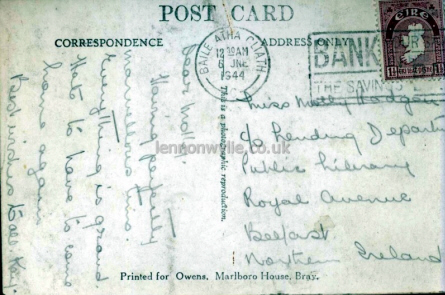 POST CARD
CORRESPONDENCE
ADDRESS ONLY
BAILE ÁTHA CLIATH
12 30AM
6 JNE
1944
BANK
THE SAVINGS
EIRE
Dear Molly,
Having perfectly
marvellous time.
Everything is grand.
Hate to have to come
home again
Best wishes to all
Miss Molly
c/o Lending Depart
Public Library
Royal Avenue
Belfast
Northern Ireland
This is a photographic reproduction.
lennonwylie.co.uk
Printed for Owens, Marlboro House, Bray.